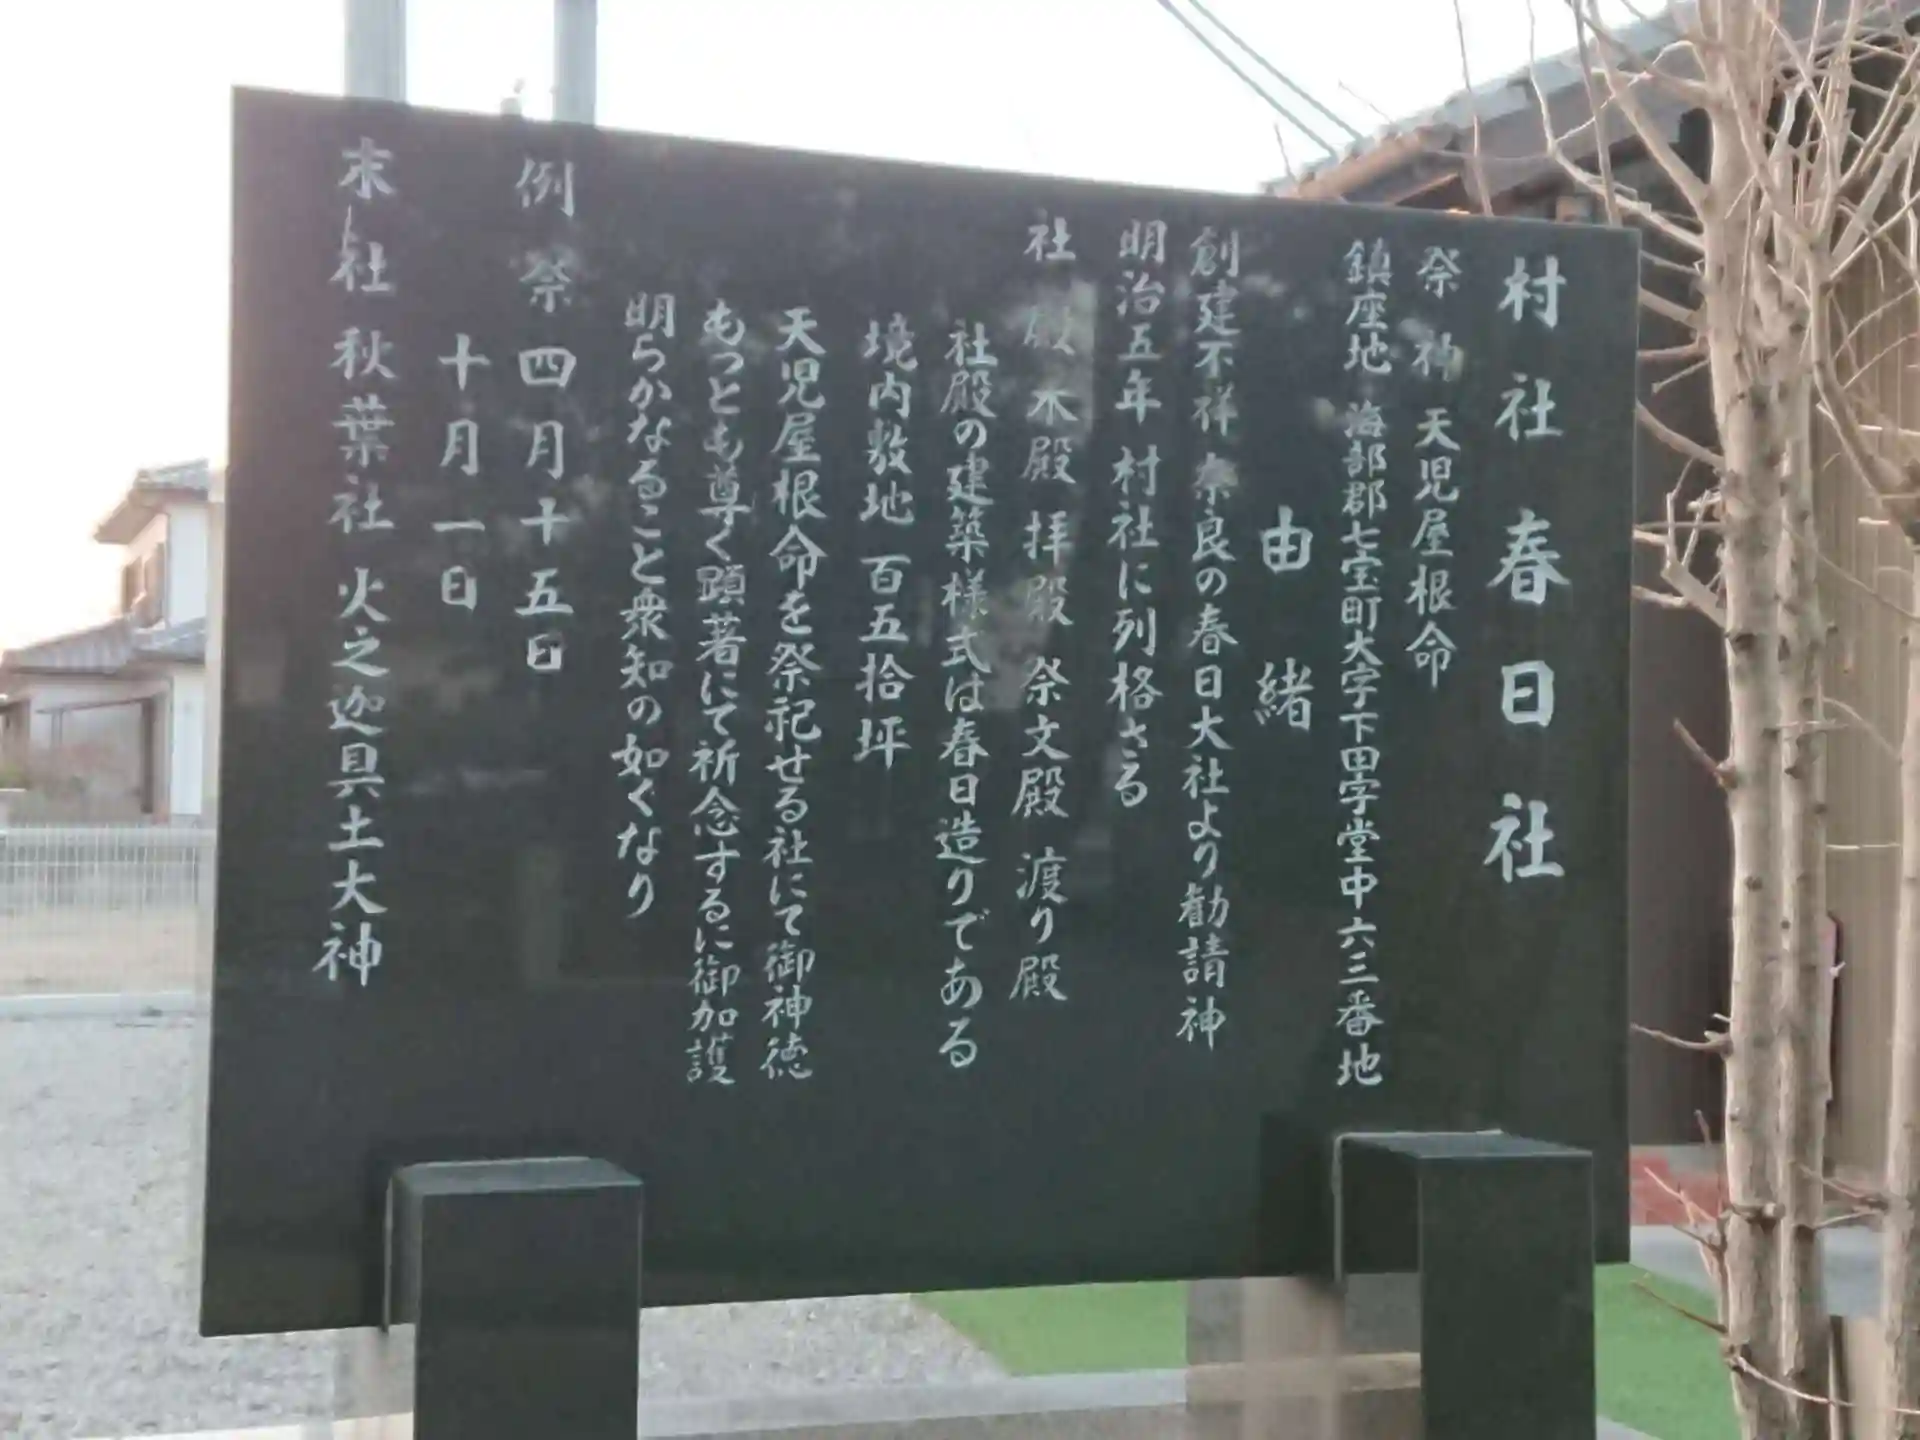 村社 春日社
祭神 天児屋根命
鎮座地 海部郡七宝町大字下田字堂中六三番地
由緒
創建不祥 奈良の春日大社より勧請神
明治五年 村社に列格さる
社殿 本殿 拝殿 祭文殿 渡り殿
社殿の建築様式は春日造りである
境内敷地 百五拾坪
天児屋根命を祭祀せる社にて御神徳
もつとも尊く顕著にて祈念するに御加護
明らかなること衆知の如くなり
例祭 四月十五日
十月一日
末社 秋葉社 火之迦具土大神